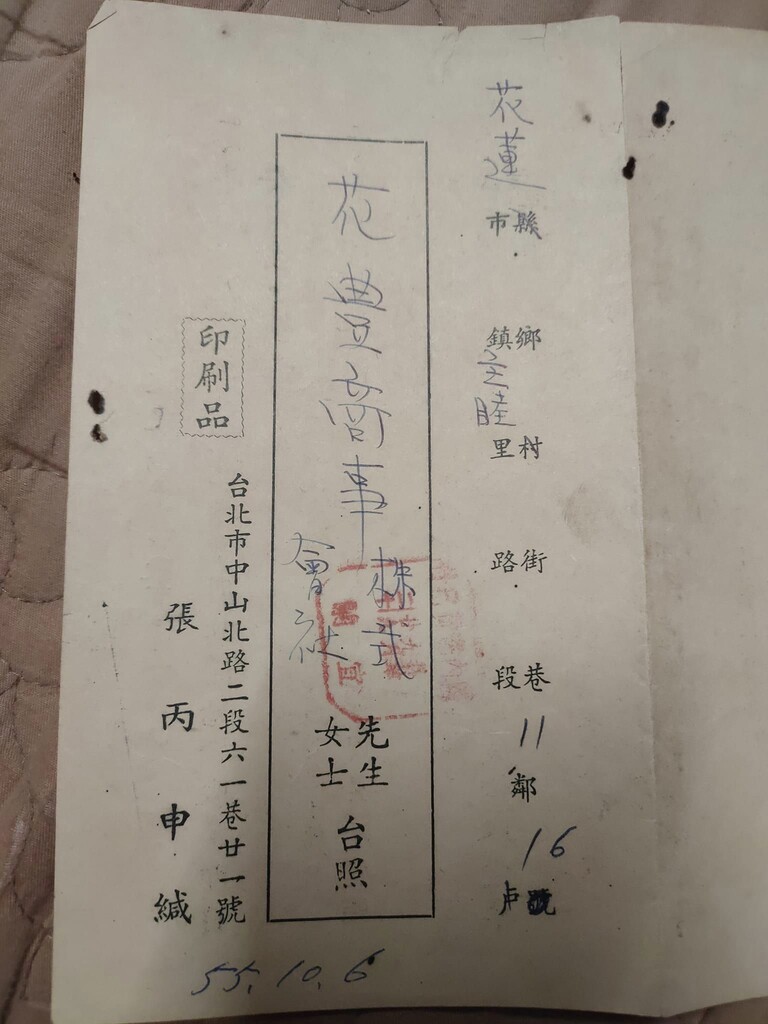 花蓮縣市 鄉鎮主睦村里 街路 巷段 11鄰 16戶號
花豊商事株式會社 先生女士 台照
台北市中山北路二段六一巷廿一號
印刷品
張丙申緘
55.10.6